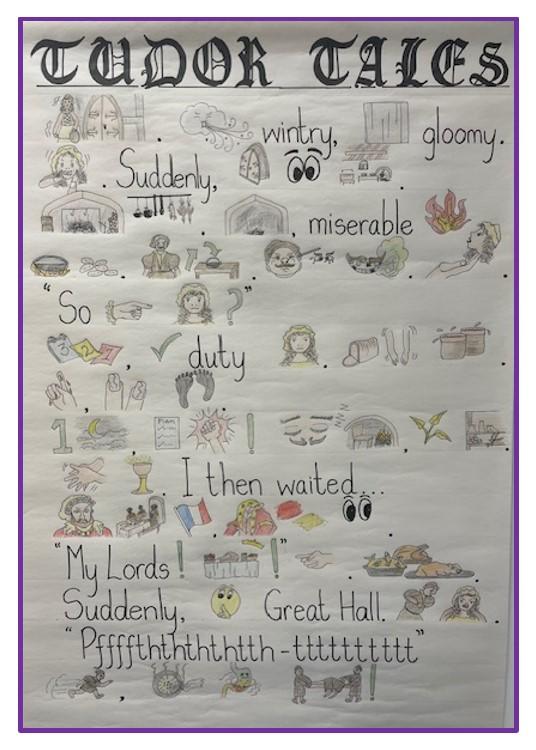 TUDOR TALES
wintry, gloomy.
Suddenly,
miserable
"So ?"
3 2 1 duty
1 Plan !
zzz
I then waited...
"My Lords ! !"
Suddenly, Great Hall.
"Pffffthththththtth-tttttttttt"
!